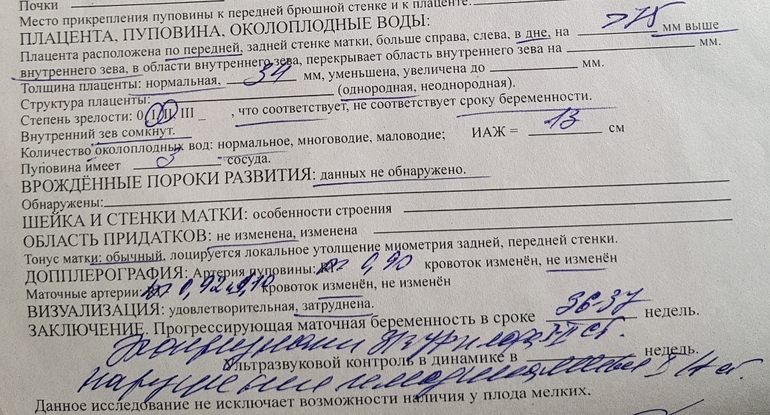 Почки
Место прикрепления пуповины к передней брюшной стенке и к плаценте:
ПЛАЦЕНТА, ПУПОВИНА, ОКОЛОПЛОДНЫЕ ВОДЫ:
Плацента расположена по передней, задней стенке матки, больше справа, слева, в дне, на >75 мм выше
внутреннего зева, в области внутреннего зева, перекрывает область внутреннего зева на мм.
Толщина плаценты: нормальная, 34 мм, уменьшена, увеличена до мм.
Структура плаценты: (однородная, неоднородная).
Степень зрелости: 0, I, II, III , что соответствует, не соответствует сроку беременности.
Внутренний зев сомкнут.
Количество околоплодных вод: нормальное, многоводие, маловодие; ИАЖ = 13 см
Пуповина имеет 3 сосуда.
ВРОЖДЁННЫЕ ПОРОКИ РАЗВИТИЯ: данных не обнаружено.
Обнаружены:
ШЕЙКА И СТЕНКИ МАТКИ: особенности строения
ОБЛАСТЬ ПРИДАТКОВ: не изменена, изменена
Тонус матки: обычный, лоцируется локальное утолщение миометрия задней, передней стенки.
ДОППЛЕРОГРАФИЯ: Артерия пуповины: 0,90 кровоток изменён, не изменён
Маточные артерии: 0,92 кровоток изменён, не изменён
ВИЗУАЛИЗАЦИЯ: удовлетворительная, затруднена.
ЗАКЛЮЧЕНИЕ. Прогрессирующая маточная беременность в сроке 36-37 недель.
ст.
Ультразвуковой контроль в динамике в недель.
ст.
Данное исследование не исключает возможности наличия у плода мелких.